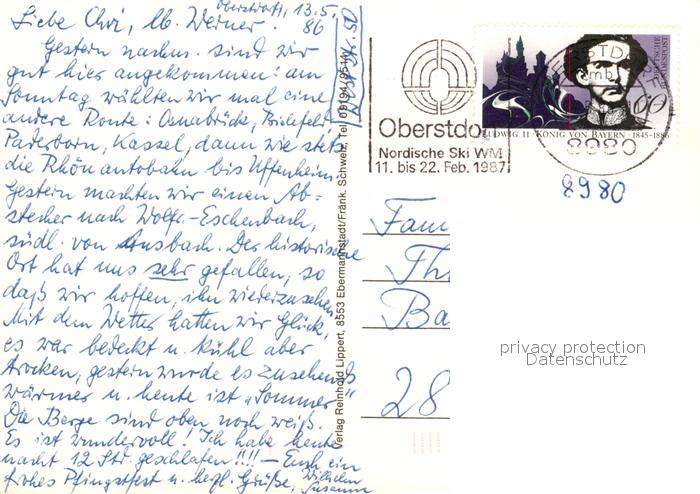 Oberstdorf, 13.5.
86
Liebe Chri, lb. Werner.
Gestern nachm. sind wir
gut hier angekommen: am
Sonntag wählten wir mal eine
andere Route: Osnabrück, Bielefeld,
Paderborn, Kassel, dann wie stets
die Rhönautobahn bis Uffenheim.
Gestern machten wir einen Ab-
stecher nach Wolfr.-Eschenbach,
südl. von Ansbach. Der historische
Ort hat uns sehr gefallen, so
daß wir hoffen, ihn wiederzusehen.
Mit dem Wetter hatten wir Glück,
es war bedeckt u. kühl aber
trocken, gestern wurde es zusehends
wärmer u. heute ist „Sommer"
Die Berge sind oben noch weiß.
Es ist wundervoll! Ich habe heute
nacht 12 Std. geschlafen!!!! – Euch ein
frohes Pfingstfest u. herzl. Grüße,
Wilhelm
Susanne
Verlag Reinhold Lippert, 8553 Ebermannstadt/Fränk. Schweiz, Tel. 09194/9514
Oberstdorf
Nordische Ski WM
11. bis 22. Feb. 1987
DEUTSCHE
BUNDESPOST
60
LUDWIG II · KÖNIG VON BAYERN · 1845-1886
8980
8980
Fam
Th
Ba
28
privacy protection
Datenschutz